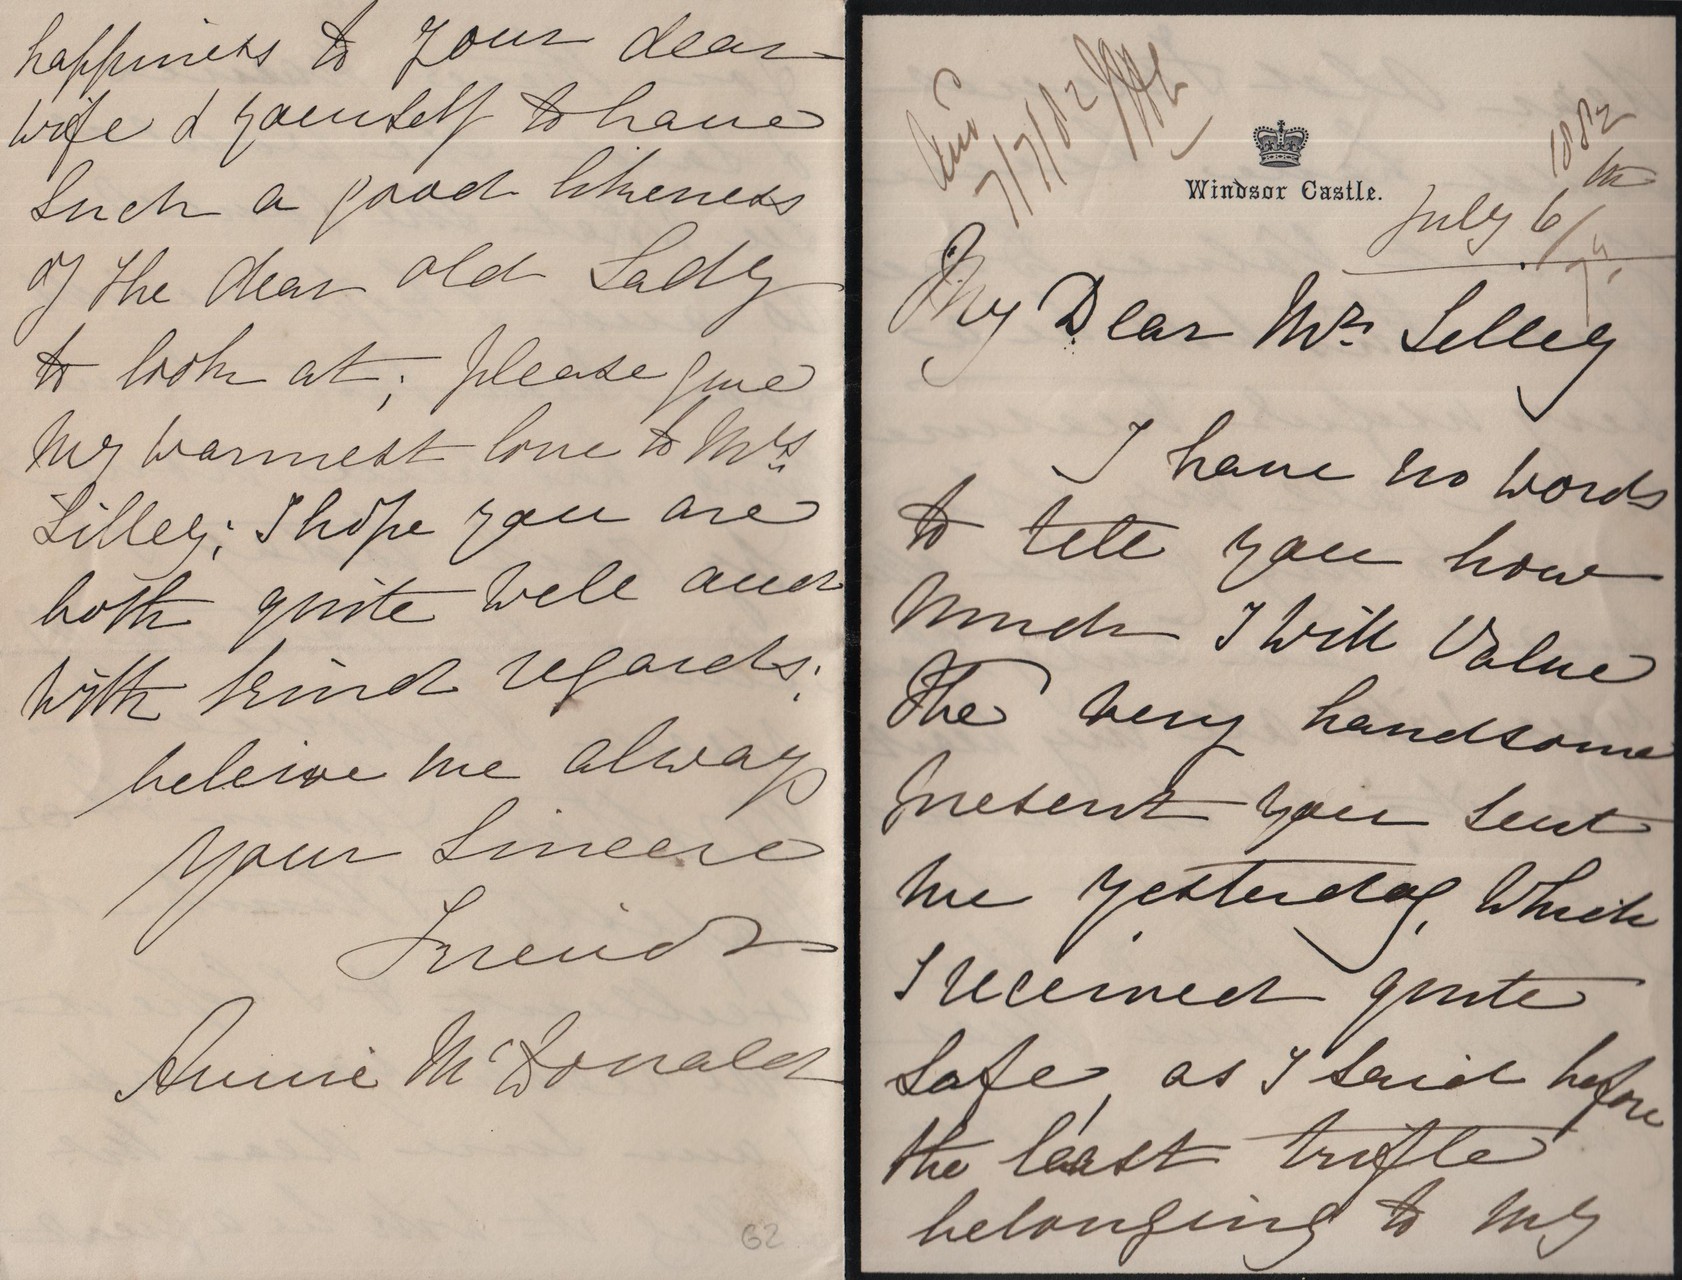 Ans
7/7/82
Windsor Castle.
1882
July 6th
My Dear Mr. Lilley
I have no words
to tell you how
much I will value
the very handsome
present you sent
me yesterday, which
I received quite
safe, as I said before
the least trifle
belonging to my
happiness to your dear
wife & yourself to have
such a good likeness
of the dear old Lady
to look at; please give
my warmest love to Mrs
Lilley; I hope you are
both quite well and
with kind regards;
beleive me alway
your sincere
Friend
Annie McDonald
62